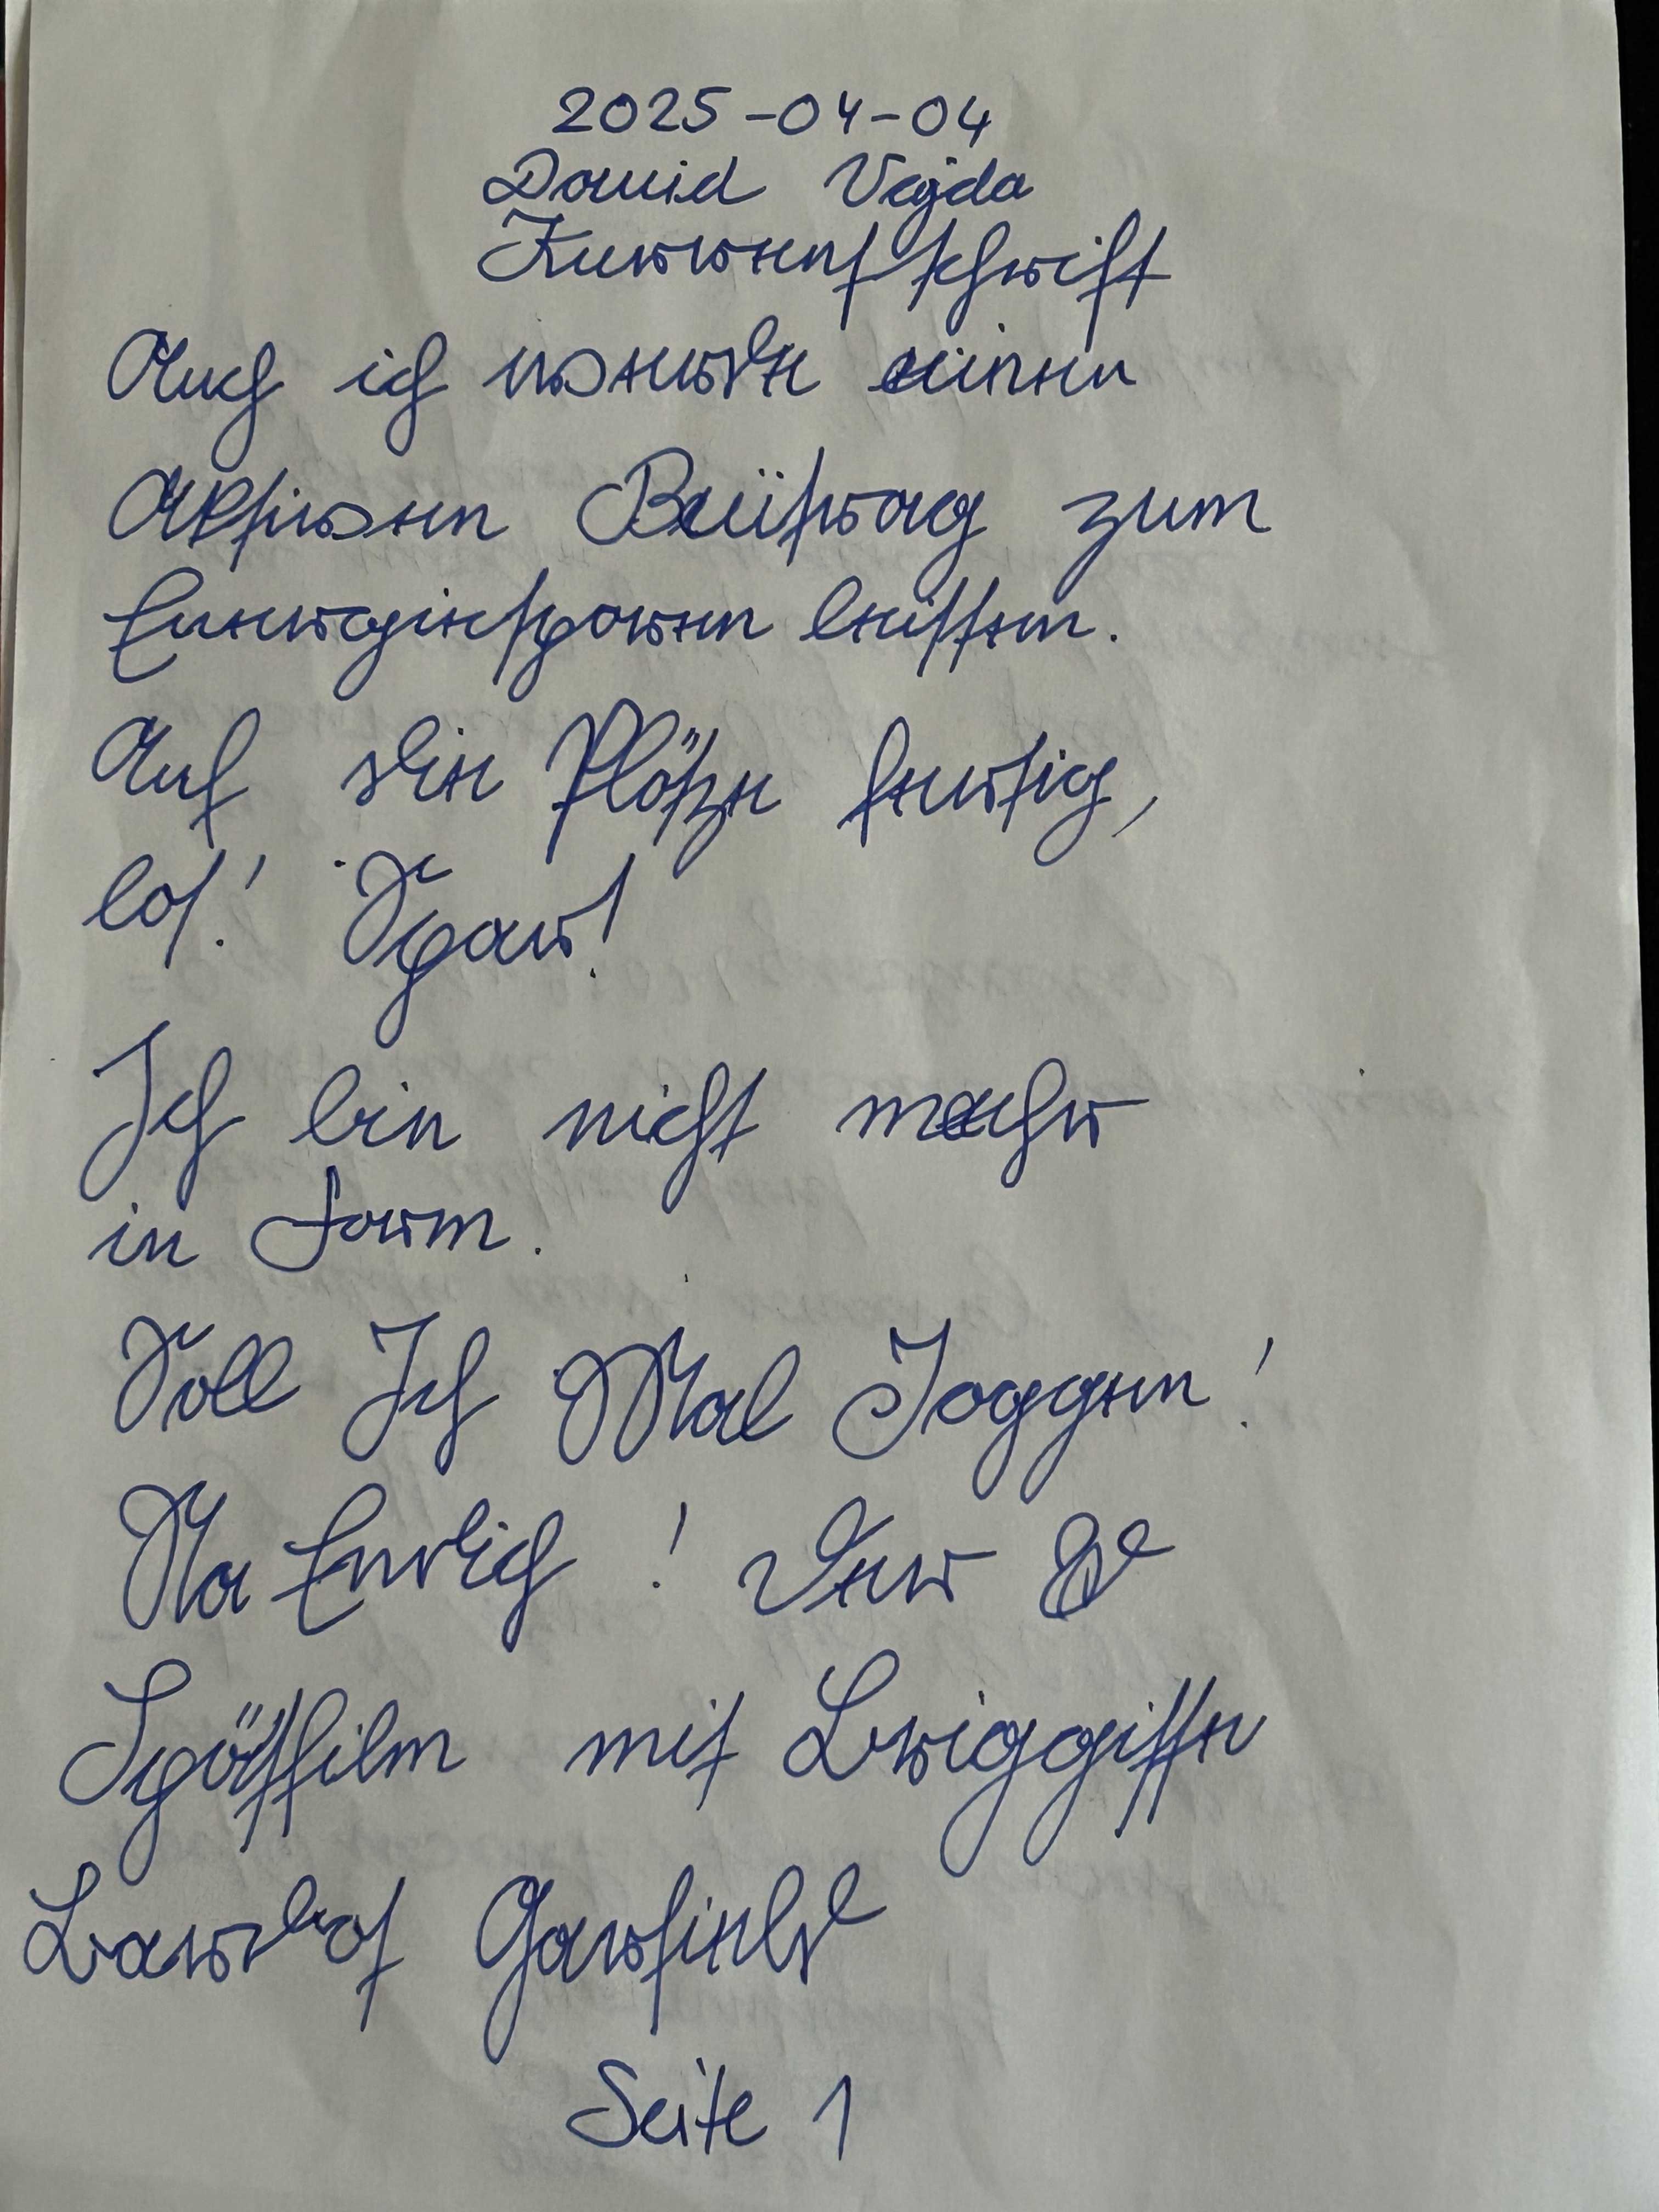 2025-04-04
David Vajda
Kurrentschrift
Auch ich werde einen
Aktiven Beitrag zum
Energiesparen leisten.
Auf die Plätze fertig,
los! Spar!
Ich bin nicht mehr
in Form.
Soll Ich Mal Joggen!
Na Endlich! Der
Spätfilm mit Brigitte
Bardot Garfield
Seite 1